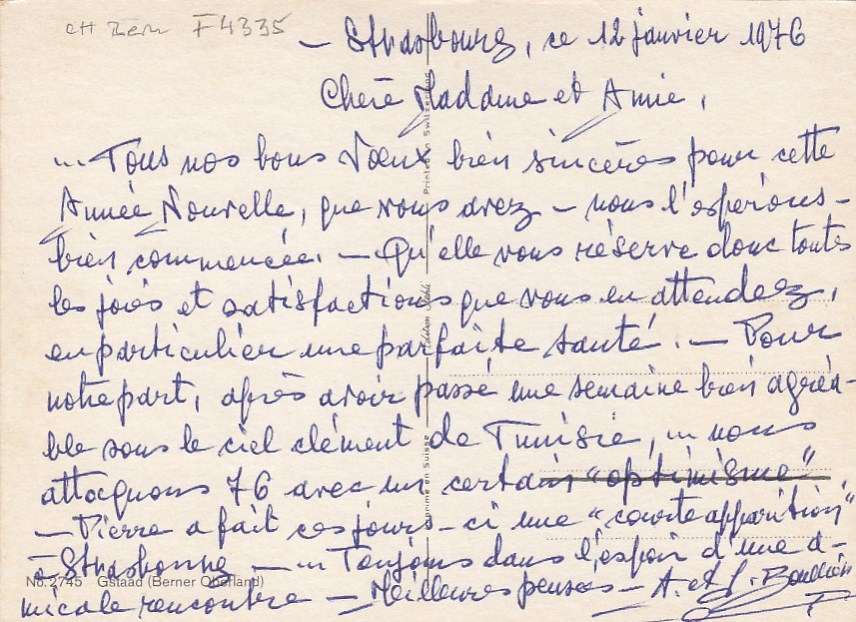 F4335
– Strasbourg, ce 12 janvier 1976
Chère Maddame et Amie,
... Tous nos bons Vœux bien sincères pour cette
Année Nouvelle, que vous avez – nous l'espérons –
bien commencée. – Qu'elle vous réserve donc toutes
les joies et satisfactions que vous en attendez,
en particulier une parfaite santé. – Pour
notre part, après avoir passé une semaine bien agréa-
ble sous le ciel clément de Tunisie, ... nous
attaquons 76 avec un certain "optimisme"
– Pierre a fait ces jours-ci une "courte apparition"
à Strasbourg – ... Toujours dans l'espoir d'une a-
No. 2745 Gstaad (Berner Oberland)
micale rencontre – Meilleures pensées – A. et J.
Printed in Switzerland
en Suisse